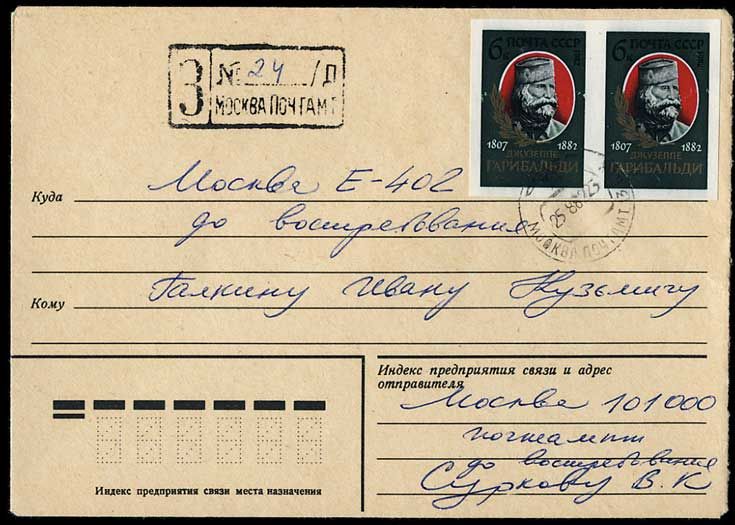 З № 24 /Д
МОСКВА ПОЧТАМТ
6к ПОЧТА СССР
1807 1882
ДЖУЗЕППЕ
ГАРИБАЛЬДИ
6к ПОЧТА СССР
1807 1882
ДЖУЗЕППЕ
ГАРИБАЛЬДИ
МОСКВА ПОЧТАМТ
Куда Москва Е-402
до востребования
Кому Галкину Ивану Кузьмичу
Индекс предприятия связи и адрес
отправителя
Москва 101000
почтамт
до востребования
Суркову В. К
Индекс предприятия связи места назначения